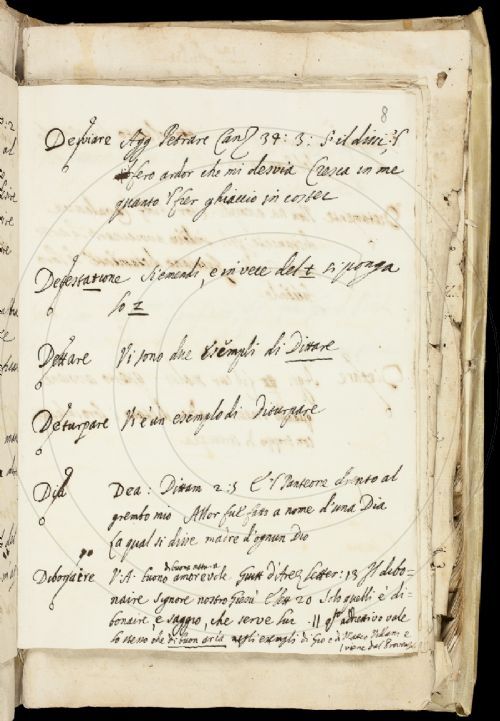 8
Desviare Agg Petrarc Canz 34: 3: S'il dissi, 'l
fero ardor che mi desvia Cresca in me
quanto 'l fier ghiaccio in costei
Detestatione Si emendi, e in vece del t si ponga
lo z
Dettare Vi sono due esempli di Dittare
Deturpare Vi è un esemplo di Diturpare
Dia Dea: Dittam 2:5 E 'l Panteone drento al
grembo mio Allor fu fatto a nome d'una Dia
La qual si dive madre d'ognun Dio
di buona natura
Dibonaere V.A: buono amorevole Guitt d'Arez Letter: 13 Il debo-
naire Signore nostro Giesù E Lett 20 Solo quelli è di-
bonaire e saggio, che serve lui Il qsto addiettivo vale
lo stesso che di buon aria negli esempli di Gio e di Matteo Villani e
viene dal Provenz